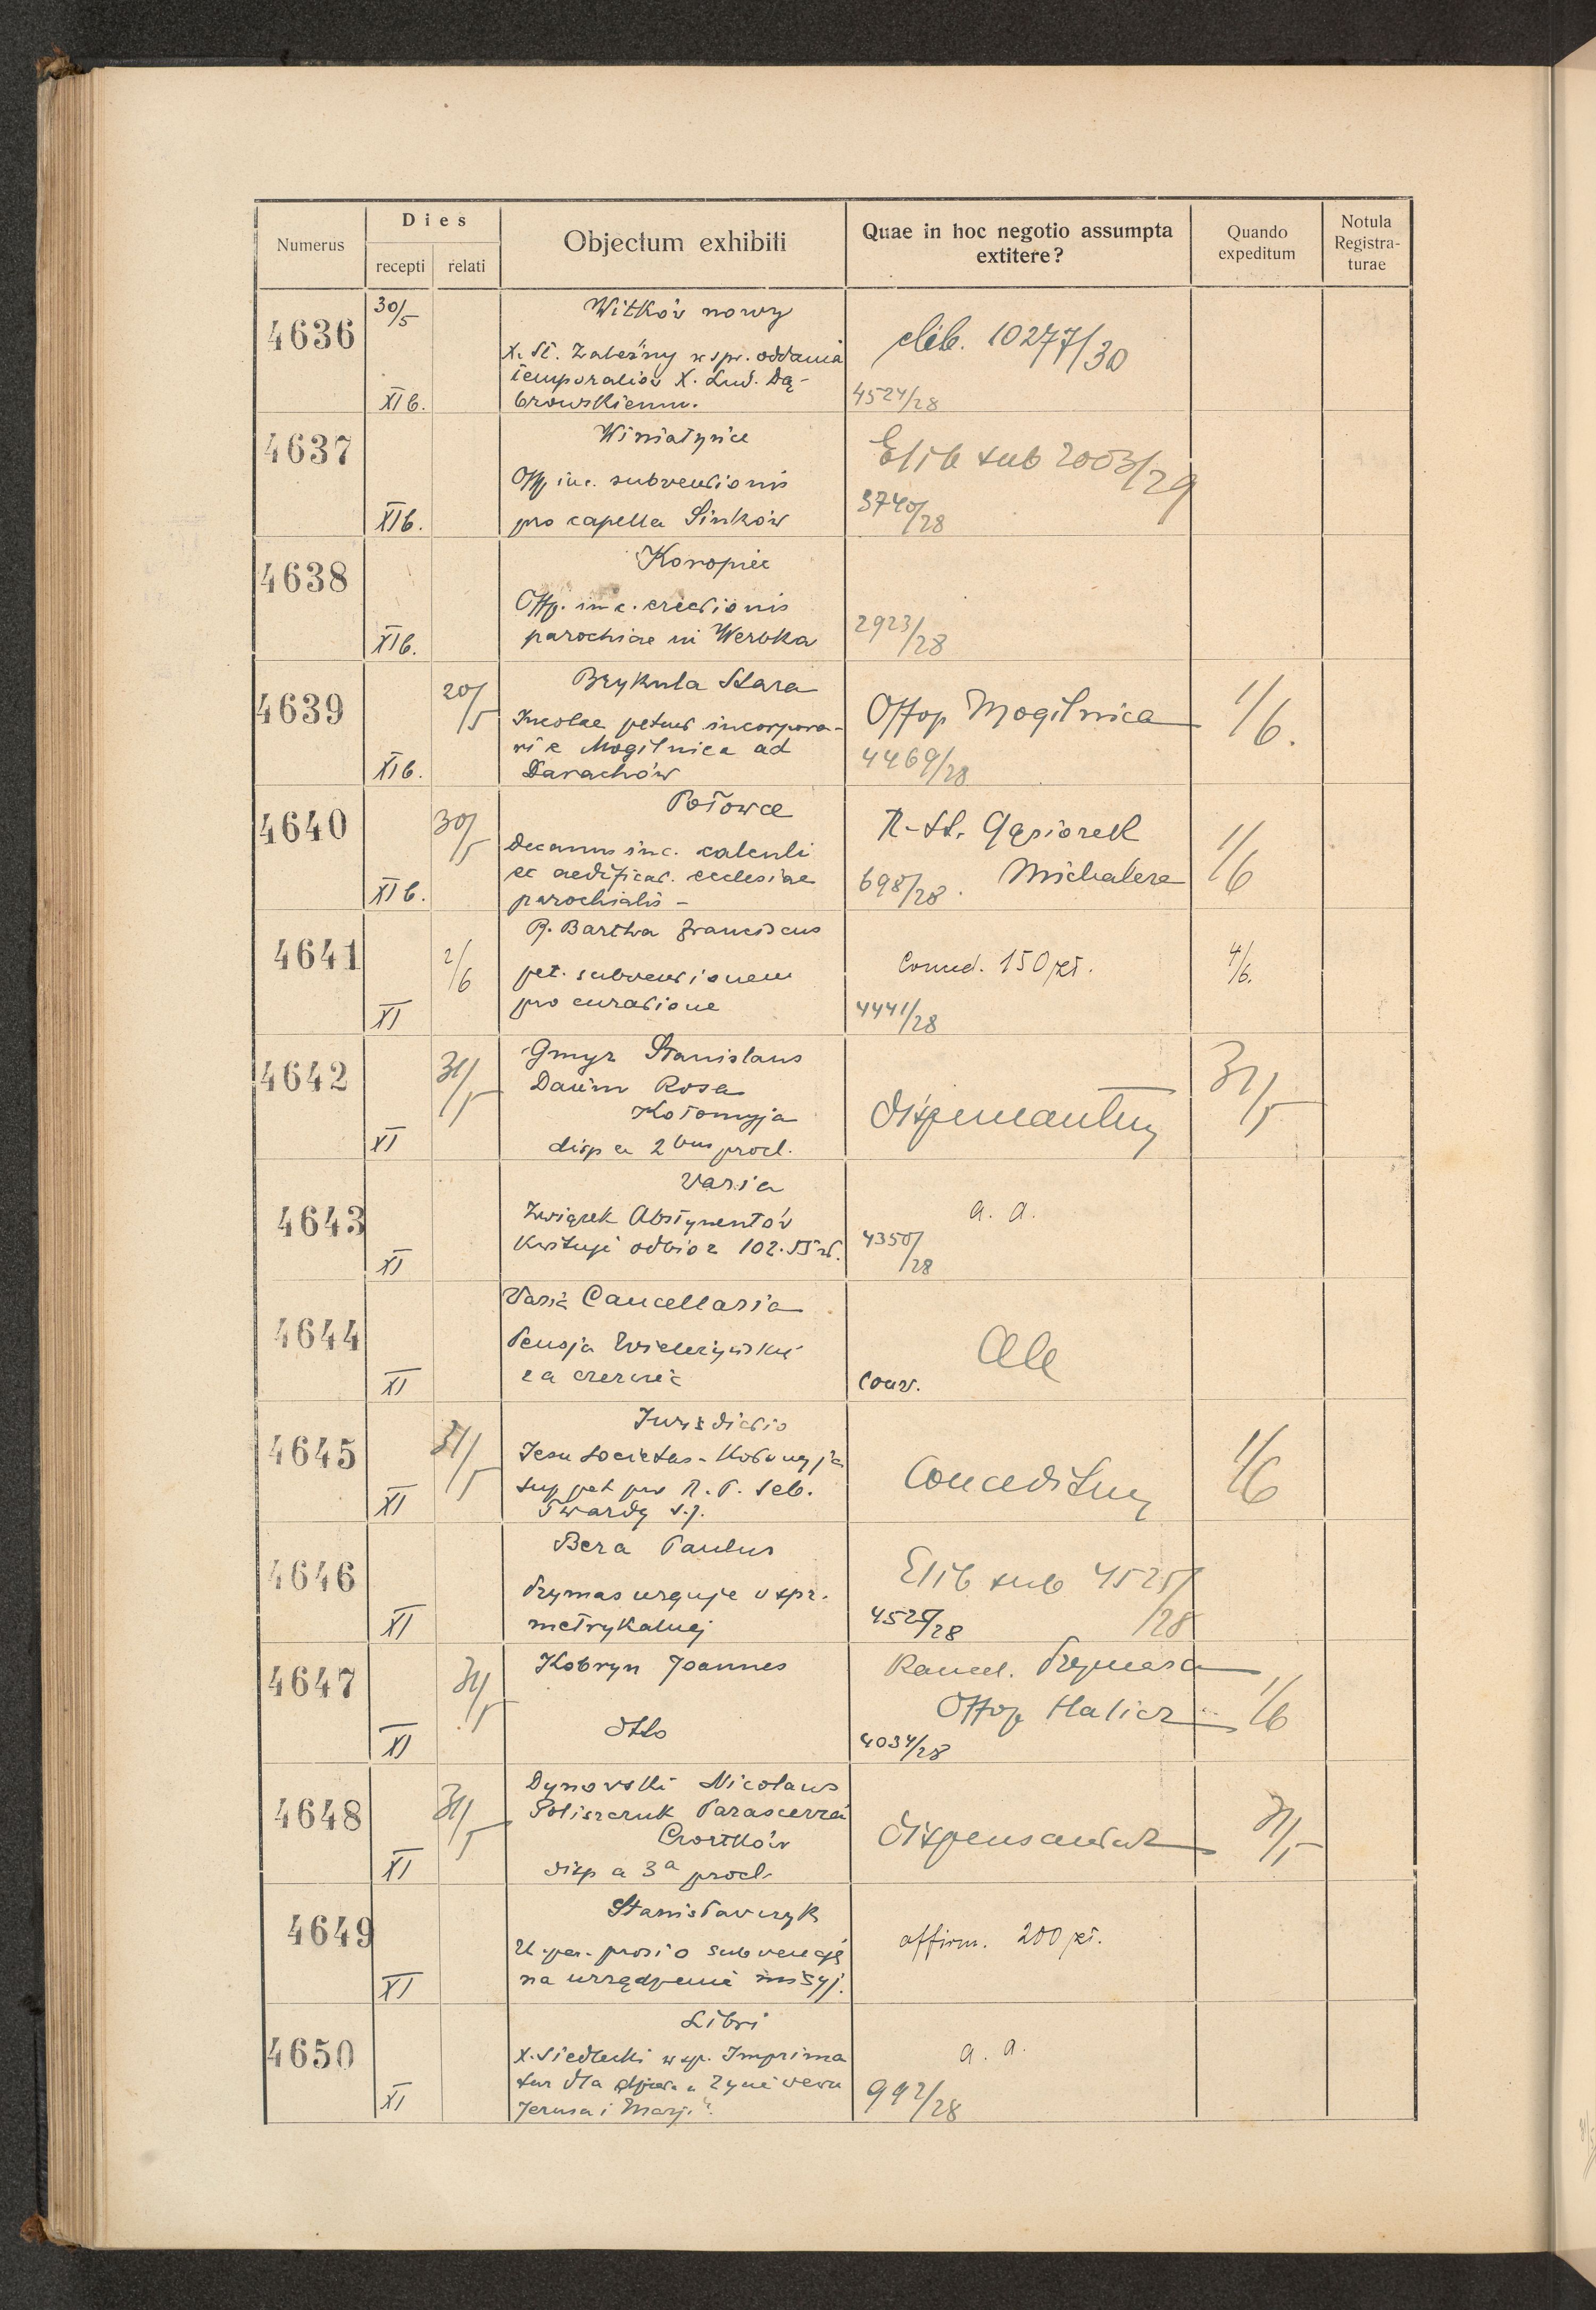 Numerus
Dies
recepti relati
Objectum exhibiti
Quae in hoc negotio assumpta
extitere?
Quando
expeditum
Notula
Registra-
turae
4636
30/5
XI b.
Witków nowy
X. St. Zależny w spr. oddania
temporaliów X. Lud. Dą-
browskiemu.
elib. 10277/30
4524/28
4637
XI b.
Winiatyńce
Off. inc. subventionis
pro capella Sinków
Elib sub 2003/29
3740/28
4638
XI b.
Koropiec
Offp. in c. erectionis
parochiae in Werbka
2923/28
4639
20/5
XI b.
Brykula Stara
Incolae petunt incorpora-
ri e Mogilnica ad
Darachów
Offop Mogilnica
4469/28
1/6.
4640
30/5
XI b.
Połowce
Decanus inc. calculi
ex aedificat. ecclesiae
parochialis -
R. St. Gąsiorek
Michalcze
698/28.
1/6
4641
2/6
XI
R. Bartha Franciscus
pet. subventionem
pro curatione
Comed. 150 zł.
4441/28
4/6.
4642
31/5
XI
Gmyr Stanislaus
Daum Rosa
Kołomyja
disp a 2bus procl.
dispensantur
31/5
4643
XI
Varia
Związek Abstynentów
kwituje odbiór 102.55 zł.
a. a.
4350/28
4644
XI
Varia Cancellaria
Pensja Wieleżyński
za czerwiec
Ale
Conv.
4645
31/5
XI
Jurisdictio
Jesu Societas - Kołomyja
sup pet pro R. P. Seb.
Twardy S.J.
Conceditur
1/6
4646
XI
Bera Paulus
Prymas urguje w spr.
metrykalnej
Elib sub 4525/28
4525/28
4647
31/5
XI
Kobryn Joannes
dtto
Kancel. Prymasa
Offop Halicz
4034/28
1/6
4648
31/5
XI
Dynowski Nicolaus
Poliszczuk Parascevia
Czortków
disp a 3a procl.
dispensantur
31/5
4649
XI
Stanisławczyk
U. par. prosi o subwencję
na urządzenie misyj.
affirm. 200 zł.
4650
XI
Libri
X. Siedlecki w sp. Imprima
tur dla
Jezusa i Marji".
a. a.
992/28